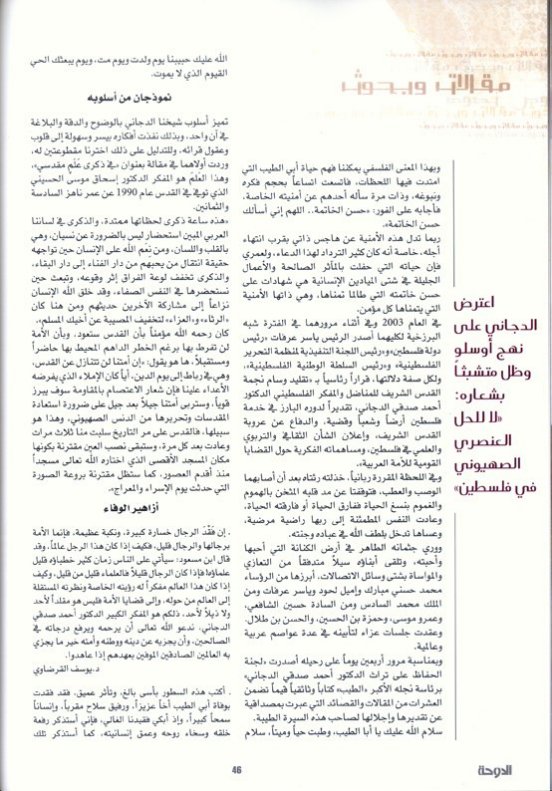 مقالات وبحوث
اعترض
الدجاني على
نهج أوسلو
وظل متشبثاً
بشعاره:
«لا للحل
العنصري
الصهيوني
في فلسطين»
وبهذا المعنى الفلسفي يمكننا فهم حياة أبي الطيب التي
امتدت فيها اللحظات، فاتسعت اتساعاً بحجم فكره
ونبوغه، وذات مرة سأله أحدهم عن أمنيته الخاصة،
فأجابه على الفور: «حسن الخاتمة.. اللهم إني أسألك
حسن الخاتمة».
ربما تدل هذه الأمنية عن هاجس ذاتي بقرب انتهاء
أجله، خاصة أنه كان كثير الترداد لهذا الدعاء، ولعمري
فإن حياته التي حفلت بالمآثر الصالحة والأعمال
الجليلة في شتى الميادين الإنسانية هي شهادات على
حسن خاتمته التي طالما تمناها، وهي ذاتها الأمنية
التي يتمناها كل مؤمن.
في العام 2003 وفي أثناء مرورهما في الفترة شبه
البرزخية لكليهما أصدر الرئيس ياسر عرفات «رئيس
دولة فلسطين» و«رئيس اللجنة التنفيذية لمنظمة التحرير
الفلسطينية»، و«رئيس السلطة الوطنية الفلسطينية»،
ولكل صفة دلالاتها، قراراً رئاسياً بـ «تقليد وسام نجمة
القدس الشريف للمناضل والمفكر الفلسطيني الدكتور
أحمد صدقي الدجاني، تقديراً لدوره البارز في خدمة
فلسطين أرضاً وشعباً وقضية، والدفاع عن عروبة
القدس الشريف، وإعلان الشأن الثقافي والتربوي
والعلمي في فلسطين، ومساهماته الفكرية حول القضايا
القومية للأمة العربية».
وفي اللحظة المقررة ربانياً، خذلته رئتاه بعد أن أصابهما
الوصب والعطب، فتوقفتا عن مد قلبه المثخن بالهموم
والغموم بنسغ الحياة ففارق الحياة أو فارقته الحياة،
وعادت النفس المطمئنة إلى ربها راضية مرضية،
وعساها تدخل بلطف الله في عباده وجنته.
ووري جثمانه الطاهر في أرض الكنانة التي أحبها
وأحبته، وتلقى أبناؤه سيلاً متدفقاً من التعازي
والمواساة بشتى وسائل الاتصالات، أبرزها من الرؤساء
محمد حسني مبارك وإميل لحود وياسر عرفات ومن
الملك محمد السادس ومن السادة حسين الشافعي،
وعمرو موسى، وحمزة بن الحسين، والحسن بن طلال،
وعقدت جلسات عزاء لتأبينه في عدة عواصم عربية
وعالمية.
وبمناسبة مرور أربعين يوماً على رحيله أصدرت «لجنة
الحفاظ على تراث الدكتور أحمد صدقي الدجاني»
برئاسة نجله الأكبر «الطيب» كتاباً وثائقياً قيماً تضمن
العشرات من المقالات والقصائد التي عبرت بمصداقية
عن تقديرها وإجلالها لصاحب هذه السيرة الطيبة.
سلام الله عليك يا أبا الطيب، وطبت حياً وميتاً، سلام
الله عليك حبيبنا يوم ولدت ويوم مت، ويوم يبعثك الحي
القيوم الذي لا يموت.
نموذجان من أسلوبه
تميز أسلوب شيخنا الدجاني بالوضوح والدقة والبلاغة
في آن واحد، وبذلك نفذت أفكاره بيسر وسهولة إلى قلوب
وعقول قرائه، وللتدليل على ذلك اخترنا مقطوعتين له،
وردت أولاهما في مقالة بعنوان «في ذكرى عَلَم مقدسي»،
وهذا العلم هو المفكر الدكتور إسحاق موسى الحسيني
الذي توفي في القدس عام 1990 عن عمر ناهز السادسة
والثمانين.
«هذه ساعة ذكرى لحظاتها ممتدة، والذكرى في لساننا
العربي المبين استحضار ليس بالضرورة عن نسيان، وهي
بالقلب واللسان، ومن نعم الله على الإنسان حين تواجهه
حقيقة انتقال من يحبهم من دار الفناء إلى دار البقاء،
والذكرى تخفف لوعة الفراق إثر وقوعه، وتبعث حين
نستحضرها في النفس الصفاء، وقد خلق الله الإنسان
نزاعاً إلى مشاركة الآخرين حديثهم ومن هنا كان
«الرثاء» و«العزاء» لتخفيف المصيبة عن أخيك المسلم».
كان رحمه الله مؤمناً بأن القدس ستعود، وبأن الأمة
لن تفرط بها برغم الخطر الداهم المحيط بها حاضراً
ومستقبلاً، ها هو يقول: «إن أمتنا لن تتنازل عن القدس،
وهي في رباط إلى يوم الدين، أياً كان الإملاء الذي يفرضه
الأعداء علينا فإن شعار الاعتصام بالمقاومة سوف يبرز
قوياً، وستربي أمتنا جيلاً بعد جيل على ضرورة استعادة
المقدسات وتحريرها من الدنس الصهيوني، وهذا هو
سبيلها، فالقدس على مر التاريخ سلبت منا ثلاث مرات
وعادت بعد كل مرة، وستبقى نصب العين مقترنة بكونها
مكان المسجد الأقصى الذي اختاره الله تعالى مسجداً
منذ أقدم العصور، كما ستظل مقترنة بروعة الصورة
التي حدثت يوم الإسراء والمعراج».
أزاهير الوفاء
. إن فَقْدَ الرجال خسارة كبيرة، ونكبة عظيمة، فإنما الأمة
برجالها والرجال قليل، فكيف إذا كان هذا الرجل عالماً، وقد
قال ابن مسعود: سيأتي على الناس زمان كثير خطباؤه قليل
علماؤه! فإذا كان الرجال قليلاً فالعلماء قليل من قليل، وكيف
إذا كان هذا العالم مفكراً له رؤيته الخاصة ونظرته المستقلة
إلى العالم من حوله، وإلى قضايا الأمة فليس هو مقلداً لأحد
ولا ذيلاً لأحد، ذلكم هو المفكر الكبير الدكتور أحمد صدقي
الدجاني، ندعو الله تعالى أن يرحمه ويرفع درجاته في
الصالحين، وأن يجزيه عن دينه ووطنه وأمته خير ما يجزي
به العالمين الصادقين الموفين بعهدهم إذا عاهدوا.
د.يوسف القرضاوي
. أكتب هذه السطور بأسى بالغ، وتأثر عميق، فقد فقدت
بوفاة أبي الطيب أخاً عزيزاً، ورفيق سلاح مقرباً، وإنساناً
سمحاً كبيراً، وإذ أبكي فقيدنا الغالي، فإني أستذكر رفعة
خلقه وسخاء روحه وعمق إنسانيته، كما أستذكر تلك
46
الدوحة